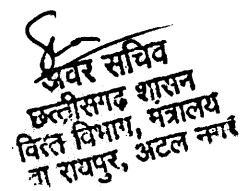 अवर सचिव
छत्तीसगढ़ शासन
वित्त विभाग, मंत्रालय
वा रायपुर, अटल नगर